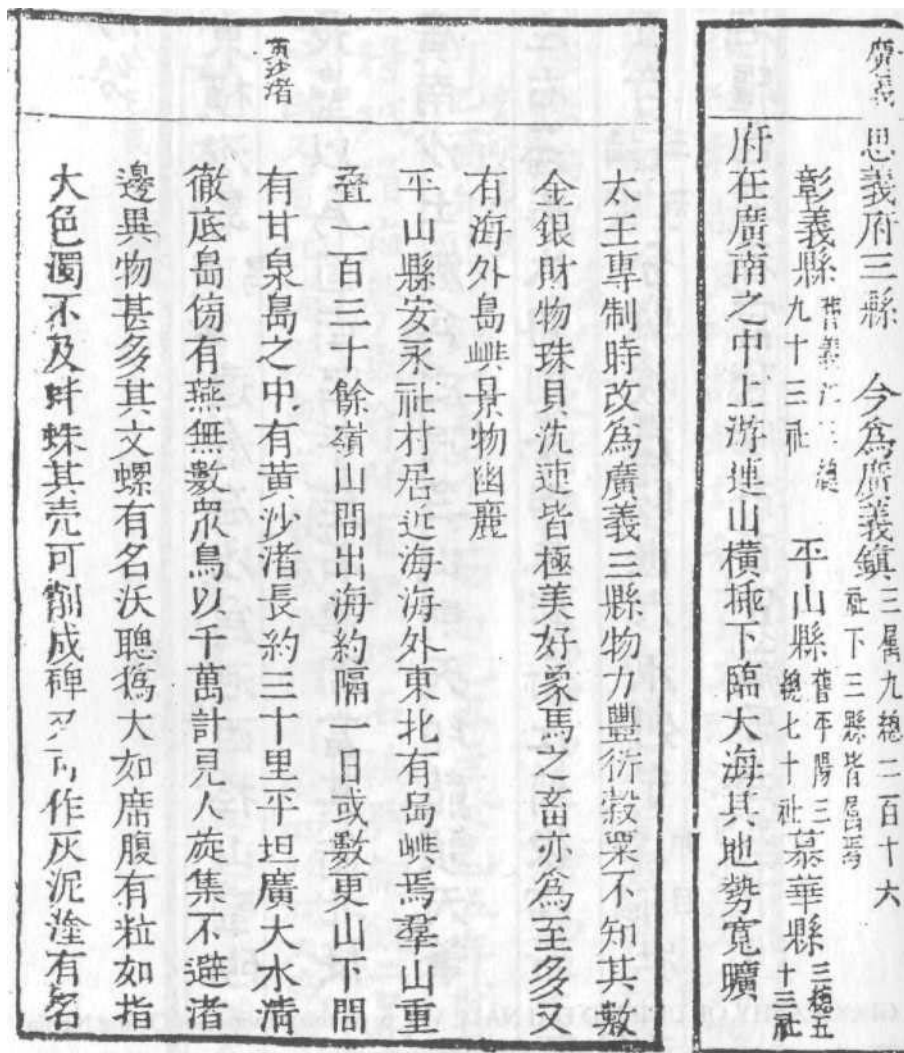 廣義
思義府三縣　今爲廣義鎮三屬九總二百十六社下三縣皆屬焉
彰義縣舊義江三總九十三社　平山縣舊平陽三總七十社慕華縣三總五十三社
府在廣南之中上游連山橫極下臨大海其地勢寬曠
太王專制時改爲廣義三縣物力豐衍穀粟不知其數
金銀財物珠貝沈速皆極美好象馬之畜亦爲至多又
有海外島嶼景物幽麗
黃沙渚
平山縣安永社村居近海海外東北有島嶼焉羣山重
疊一百三十餘嶺山間出海約隔一日或數更山下間
有甘泉島之中有黃沙渚長約三十里平坦廣大水清
徹底島傍有燕無數眾鳥以千萬計見人旋集不避渚
邊異物甚多其文螺有名沃聰㺔大如席腹有粒如指
大色濁不及蚌蛛其壳可削成碑又可作灰泥塗有名